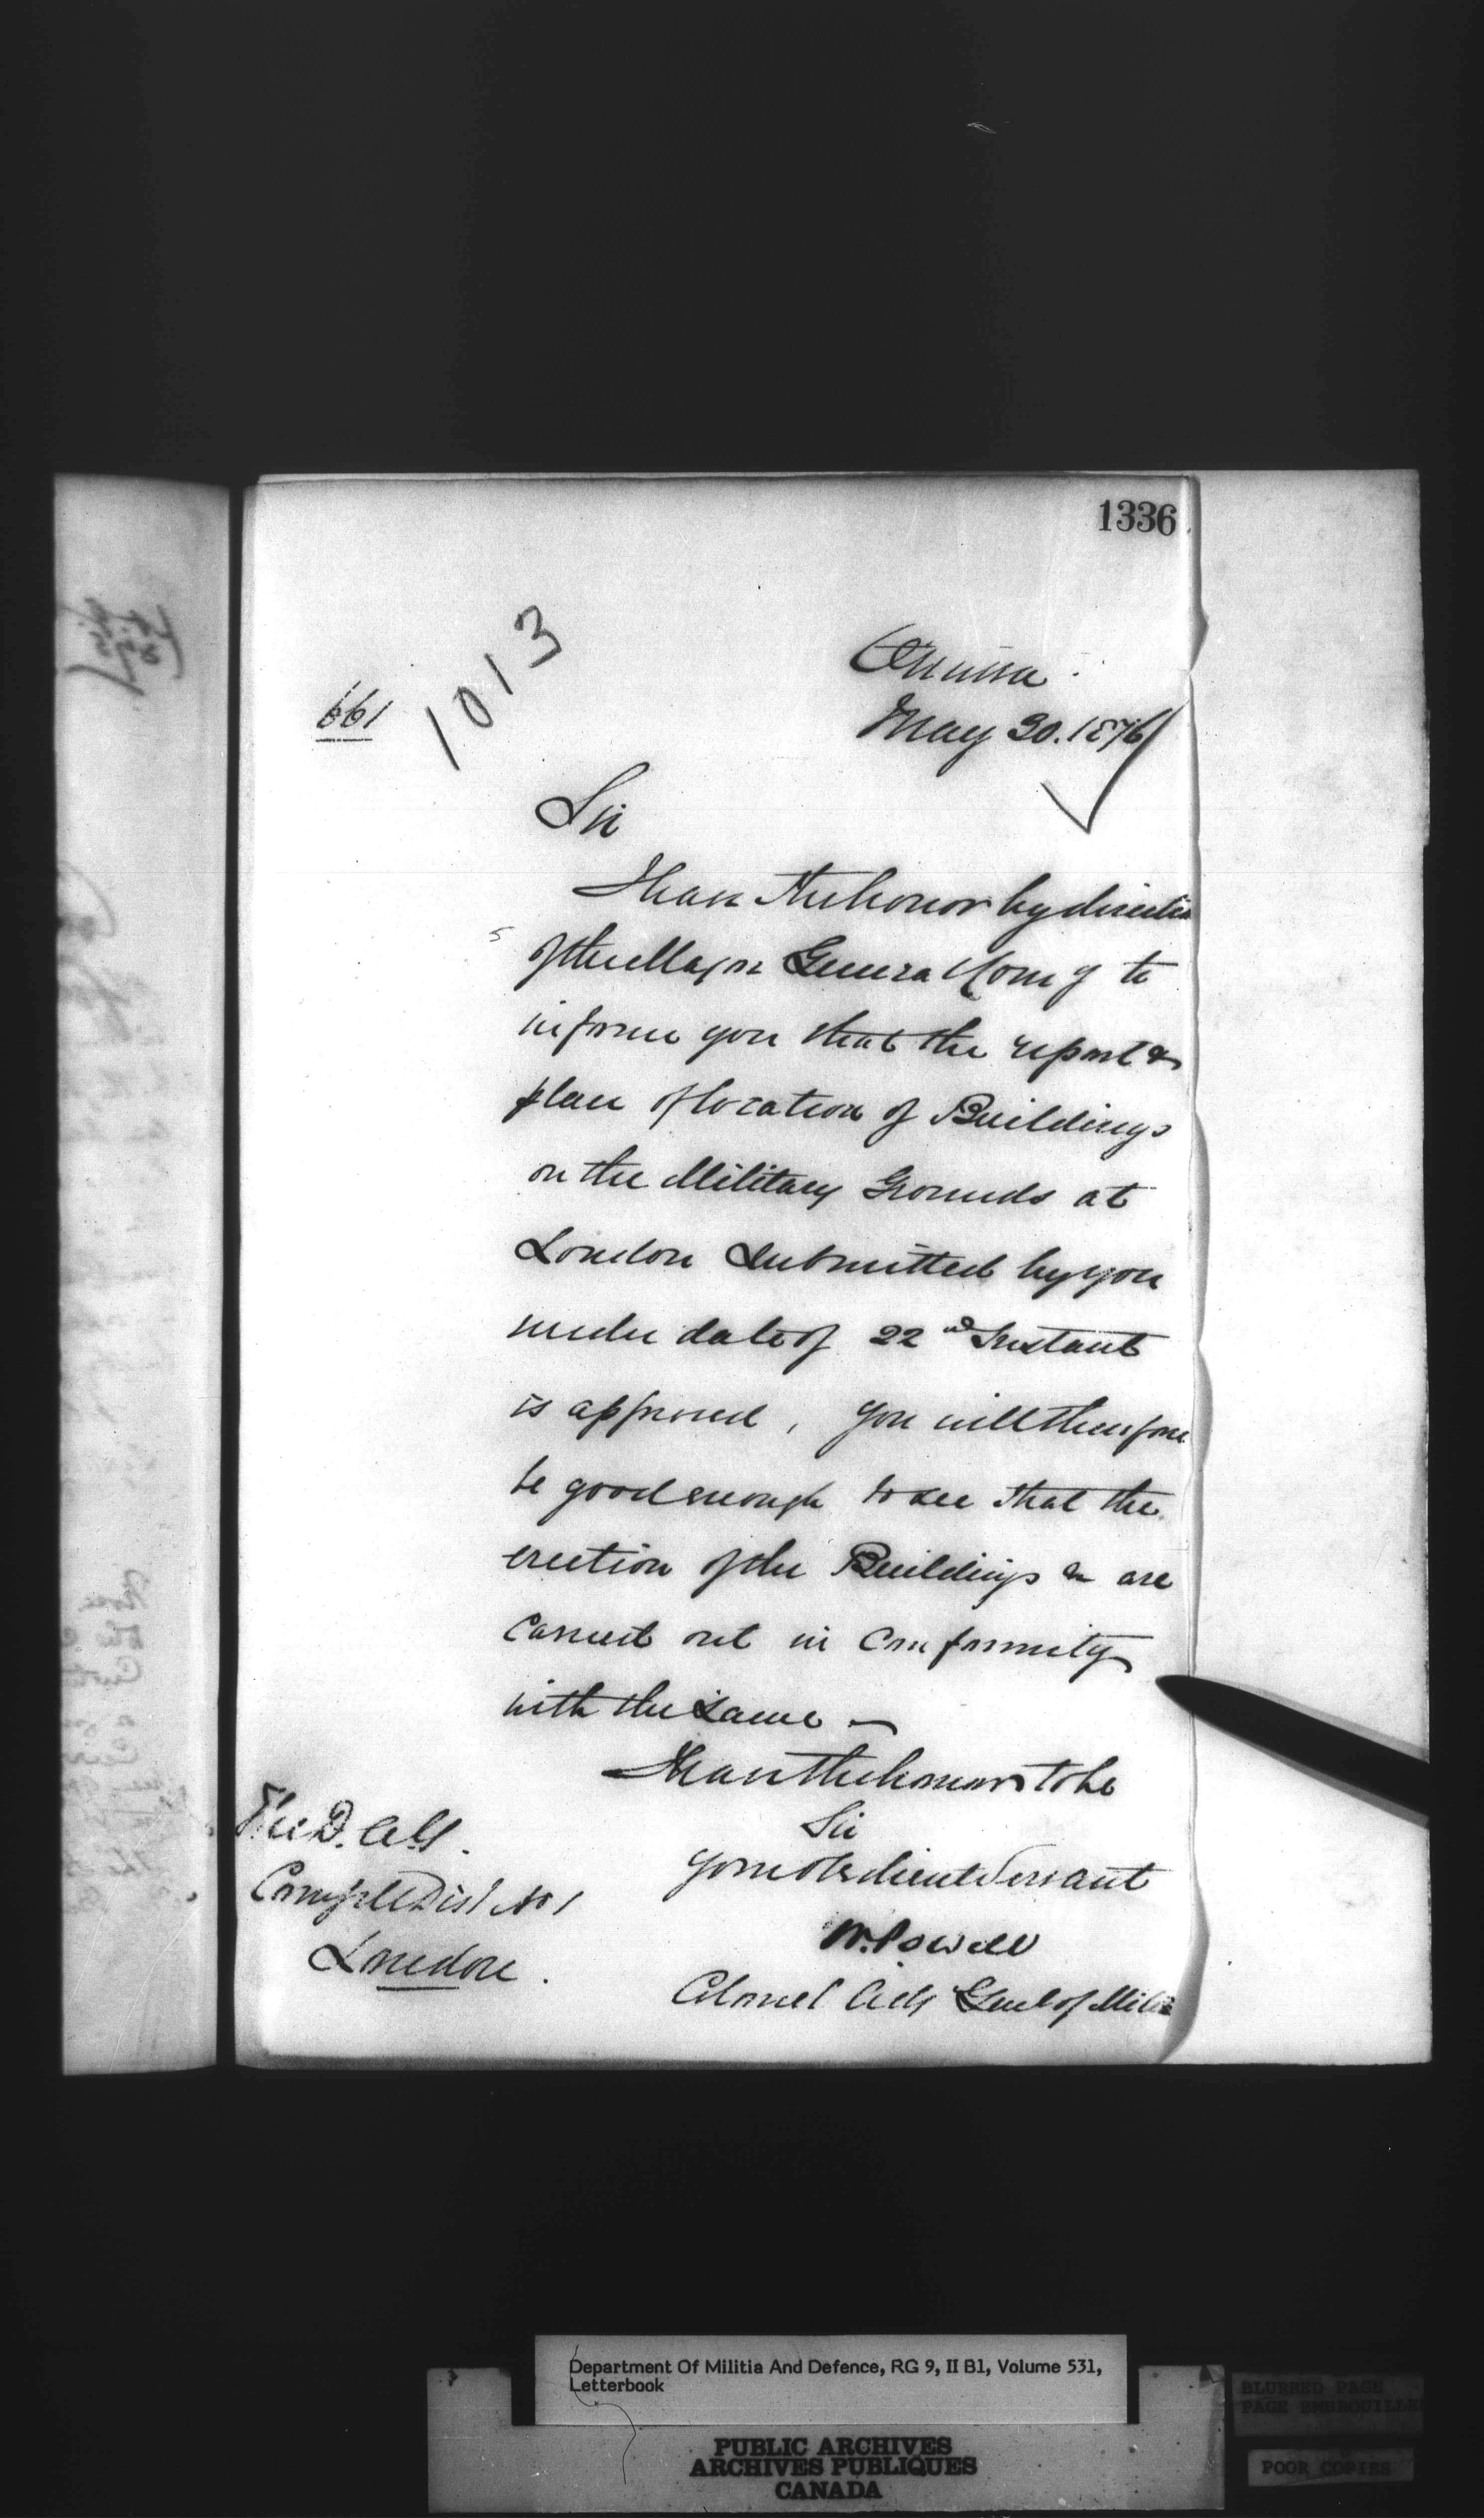 1336
1013
661
Ottawa
May 30. 1876
Sir
I have the honor by direction
of the Major General Comg to
inform you that the report &
plan of location of Buildings
on the Military Grounds at
London Submitted by you
under date of 22nd Instant
is approved, you will therefore
be good enough to see that the
erection of the Buildings &c are
carried out in Conformity
with the same —
I have the honor to be
Sir
Your obedient Servant
W. Powell
Colonel Adjt Genl of Militia
The D. A. G.
Comg Mil Dist No 1
London.
Department Of Militia And Defence, RG 9, II B1, Volume 531,
Letterbook
PUBLIC ARCHIVES
ARCHIVES PUBLIQUES
CANADA
BLURRED PAGE
PAGE EMBROUILLE
POOR COPIES